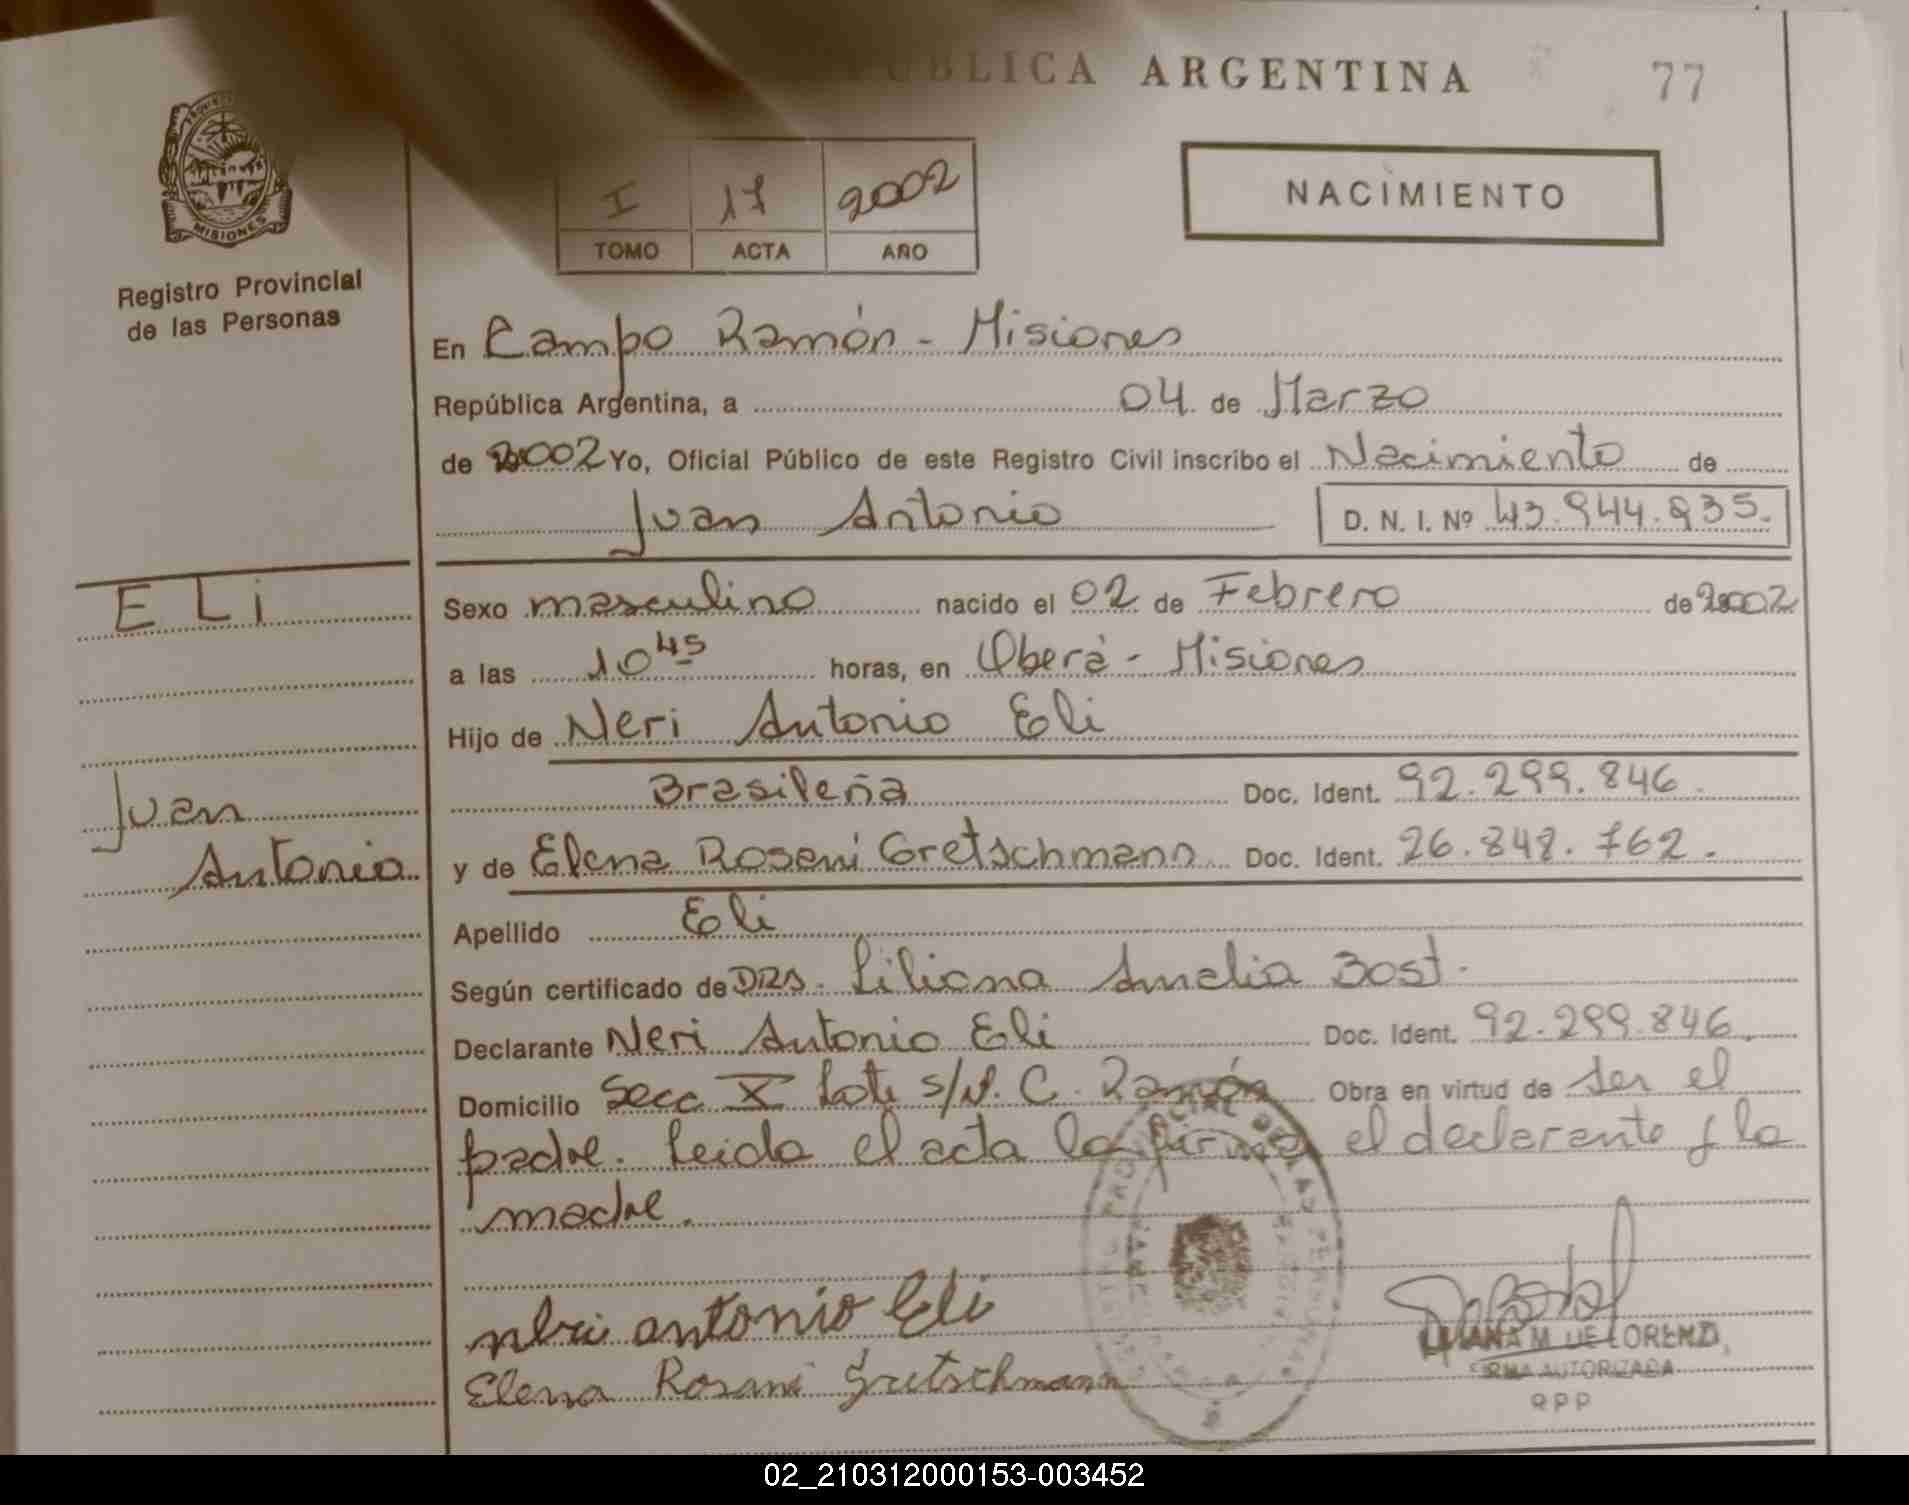 PÚBLICA ARGENTINA
77
MISIONES
Registro Provincial
de las Personas
I 17 2002
TOMO ACTA AÑO
NACIMIENTO
En Campo Ramón - Misiones
República Argentina, a 04 de Marzo
de 2002 Yo, Oficial Público de este Registro Civil inscribo el Nacimiento de
Juan Antonio
D. N. I. Nº 43.944.935.
ELi
Juan
Antonio
Sexo masculino nacido el 02 de Febrero de 2002
a las 10 45 horas, en Oberá - Misiones
Hijo de Neri Antonio Eli
Brasileña Doc. Ident. 92.299.846.
y de Elena Rosani Gretschmann Doc. Ident. 26.848.762.
Apellido Eli
Según certificado de DRA. Liliana Amelia Bost.
Declarante Neri Antonio Eli Doc. Ident. 92.299.846.
Domicilio Secc X Lote s/N. C. Ramón Obra en virtud de ser el
padre. Leida el acta la firma el declarante y la
madre.
neri antonio Eli
Elena Rosani Gretschmann
LILIANA M. DE LORENZI
FIRMA AUTORIZADA
RPP
02_210312000153-003452